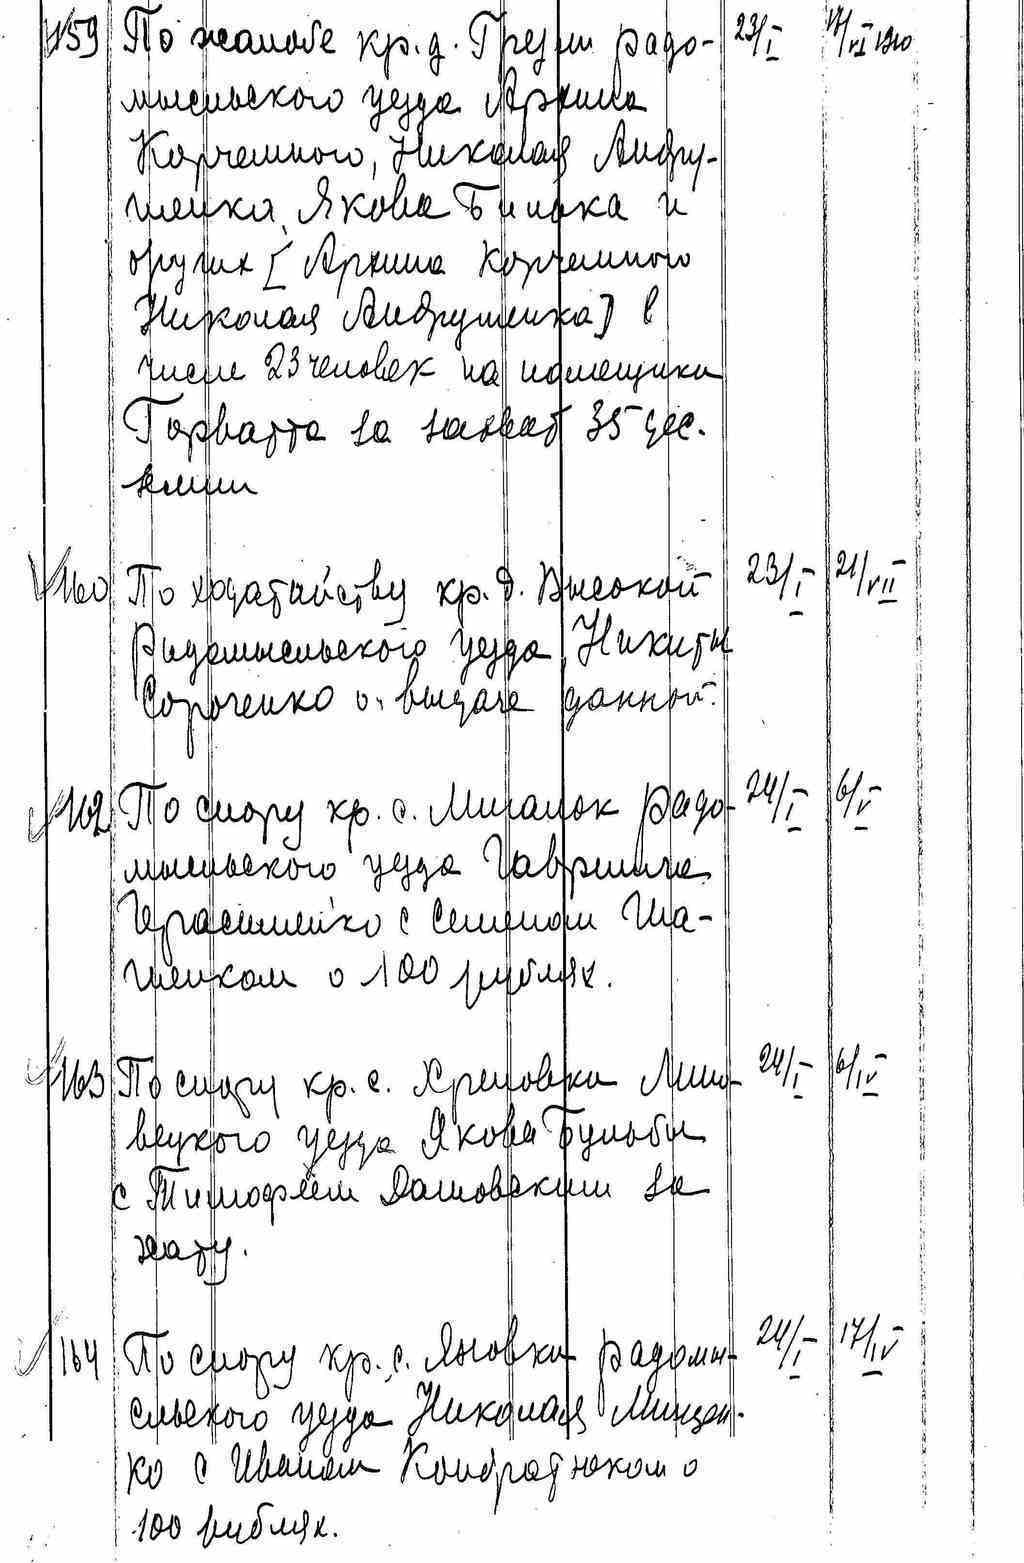 159 По жалобе кр. д. Грезли радо- 23/I 17/VI 1910
мысльского уезда Архипа
Корчемного, Николая Андру-
шенка, Якова Билока и
других [Архипа Корчемного
Николая Андрушенка] в
числе 23 человек на помещика
Горватта за захват 35 дес.
земли
160 По ходатайству кр. д. Высокой 23/I 21/VII
Радомысльского уезда Никиты
Сороченко о выдаче данной.
162 По спору кр. с. Мигалок Радо- 24/I 6/V
мысльского уезда Гавриила
Герасименко с Семеном Ша-
шенком о 100 рублях.
163 По спору кр. с. Хреновки Липо- 24/I 6/IV
вецкого уезда Якова Бульбы
с Тимофеем Дашовским за
хату.
164 По спору кр. с. Яновки радомы- 24/I 17/IV
сльского уезда Николая Мищен-
ко с Иваном Кондратюком о
100 рублях.